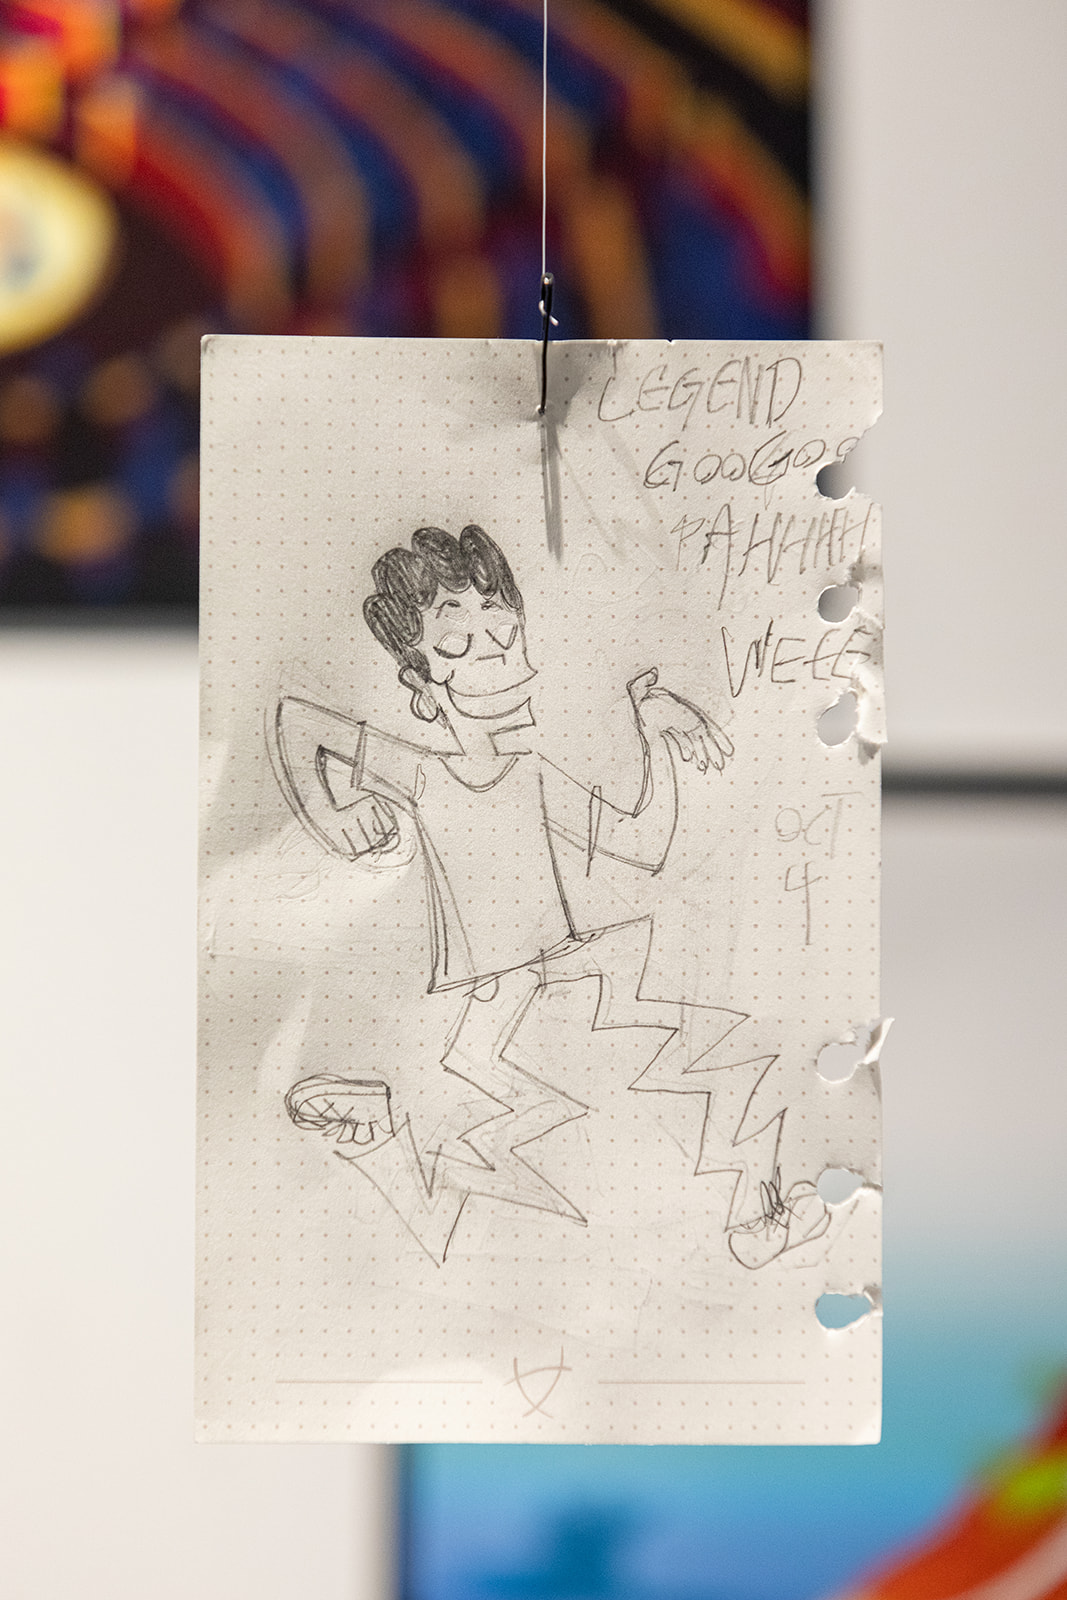 LEGEND
GOOGOO
PAHHHH
WEEE
OCT
4